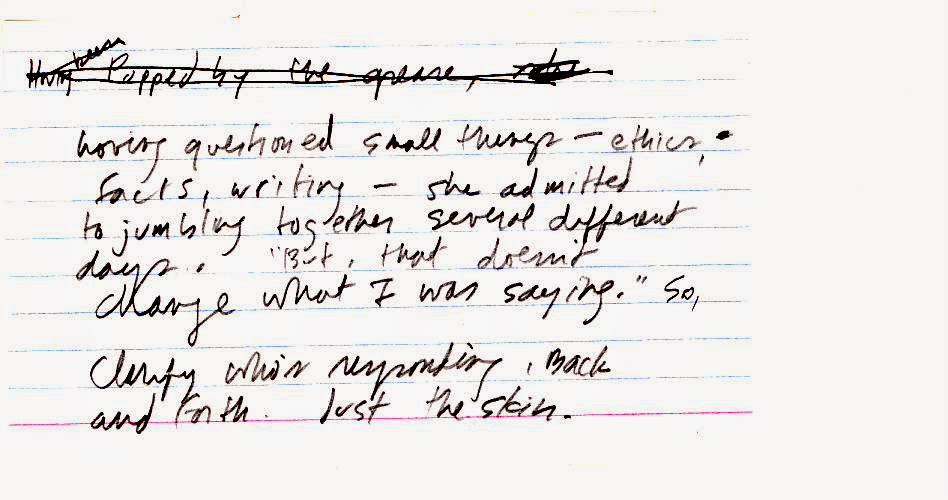 Having been Popped by the grease,
having questioned small things — ethics,
facts, writing — she admitted
to jumbling together several different
days. "But, that doesn't
change what I was saying." So,
Clarify who's responding, Back
and forth. Just the skin.